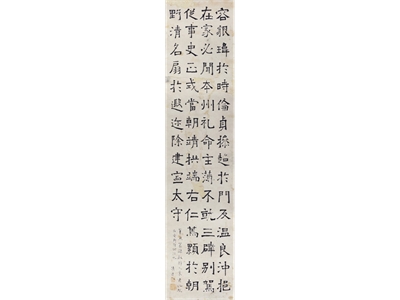 容貌瑋於時倫貞操超於門友温良沖挹
在家必聞本州礼命主簿不就三辟別駕
從事史正式當朝靖拱端右仁篤顯於朝
野清名扇於遐迩除建寧太守